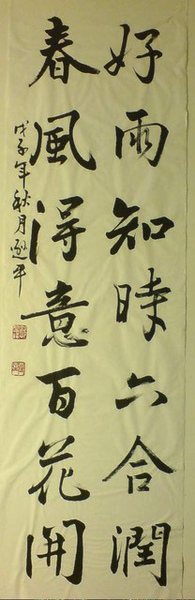 好雨知時六合潤
春風得意百花開
戊子年秋月逊平